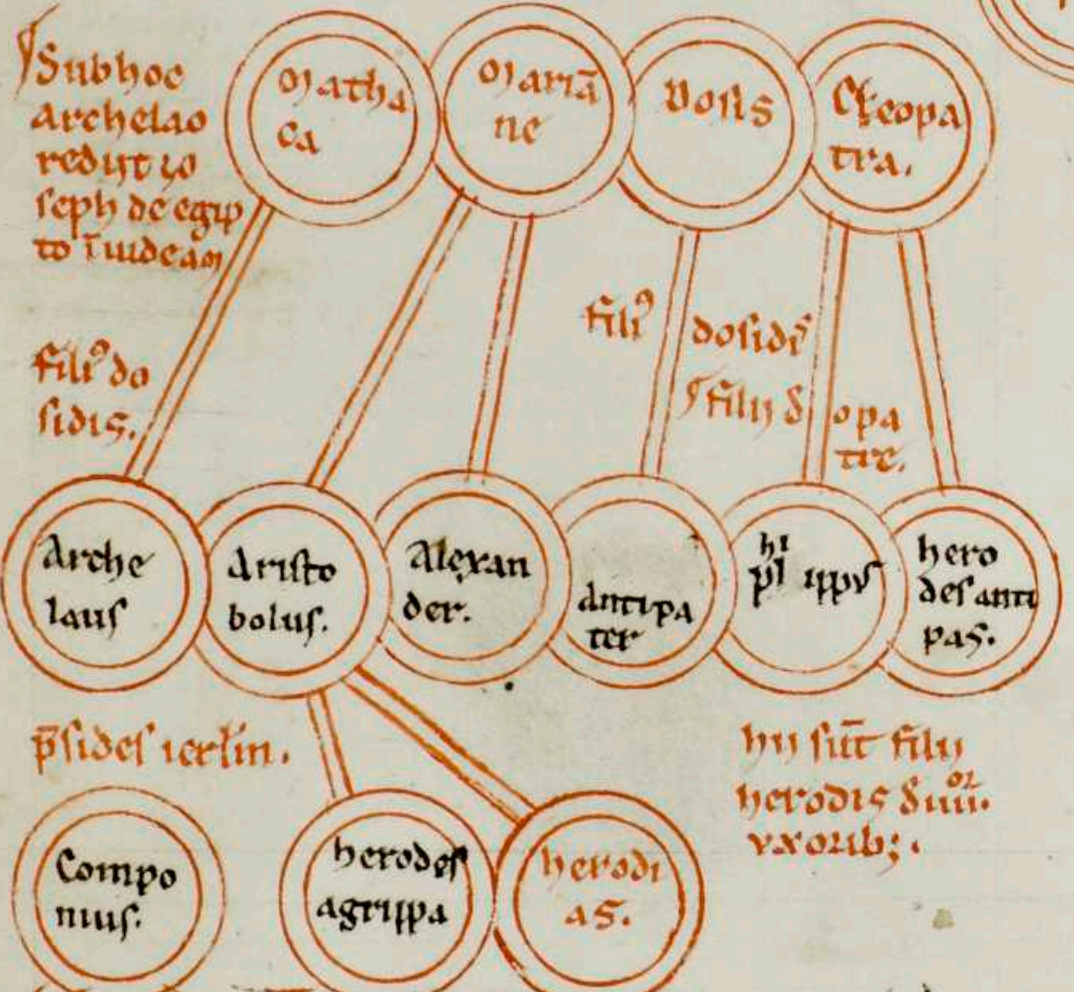 Sub hoc
archelao
redyt io
seph de egip
to ī iudeam
Matha
ca
Mariā
ne
Dosis
Cleopa
tra.
filiꝰ do
sidis.
filiꝰ dosidis
filii cleopa
tre.
Arche
laus
Aristo
bolus.
Alexan
der.
antipa
ter
phi
lippus
hero
des anti
pas.
p̄sides ierl̄m.
hii sūt filii
herodis d̄ iiii.or
uxorib;.
Compo
nius.
herodes
agrippa
herodi
as.